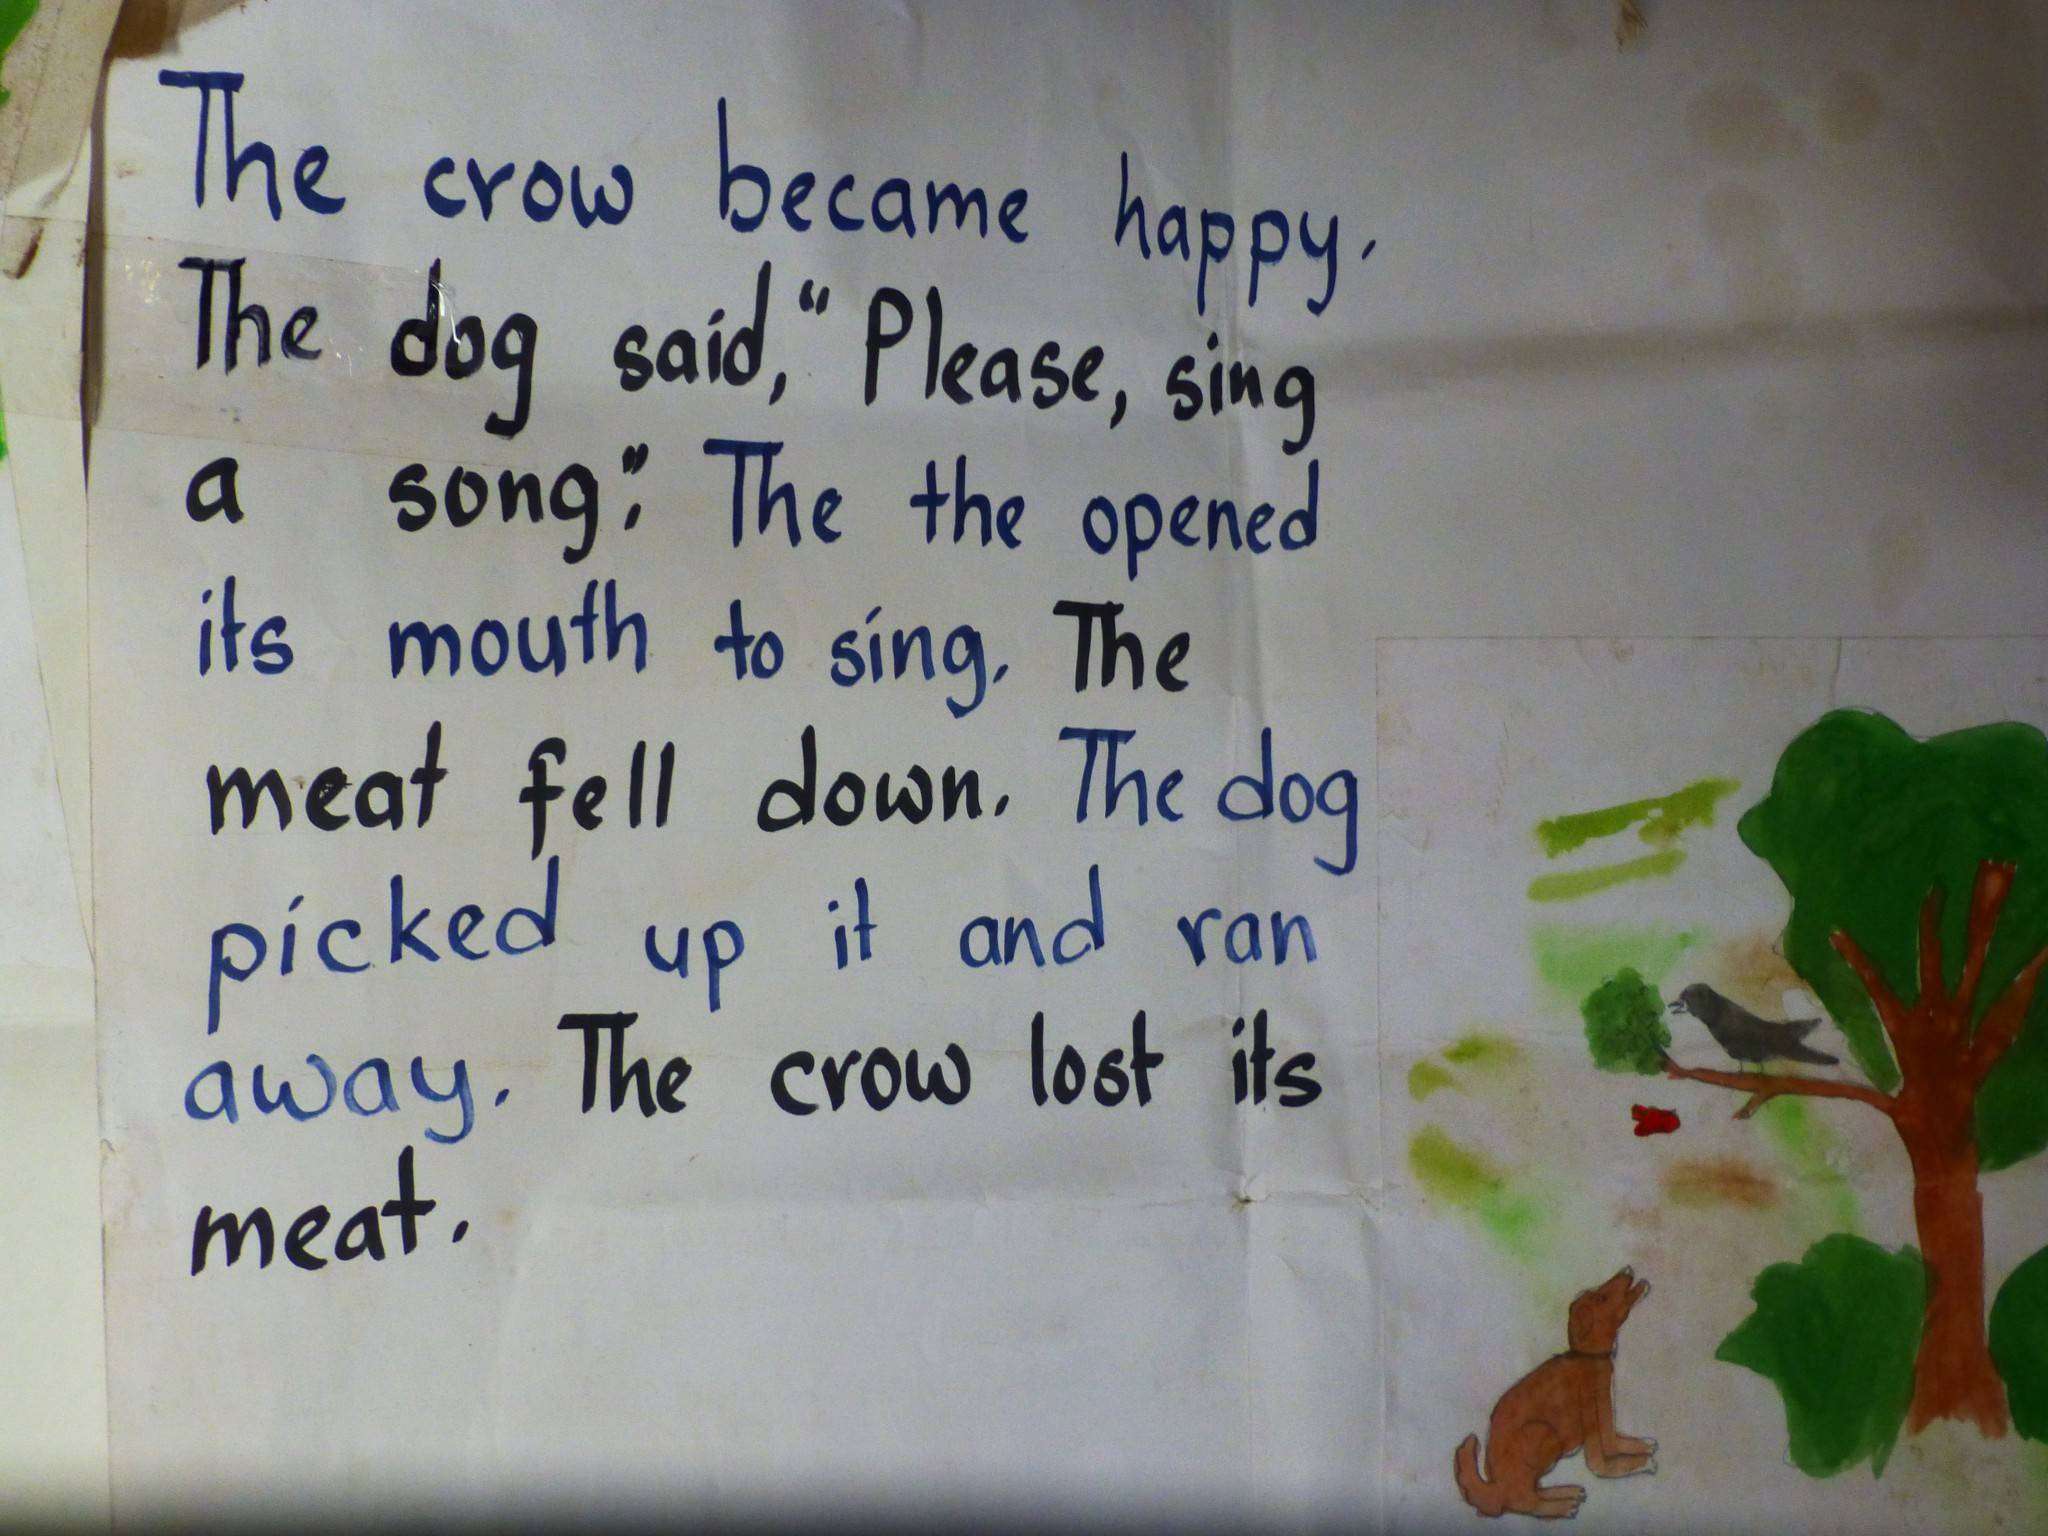 The crow became happy.
The dog said, "Please, sing
a song". The the opened
its mouth to sing. The
meat fell down. The dog
picked up it and ran
away. The crow lost its
meat.